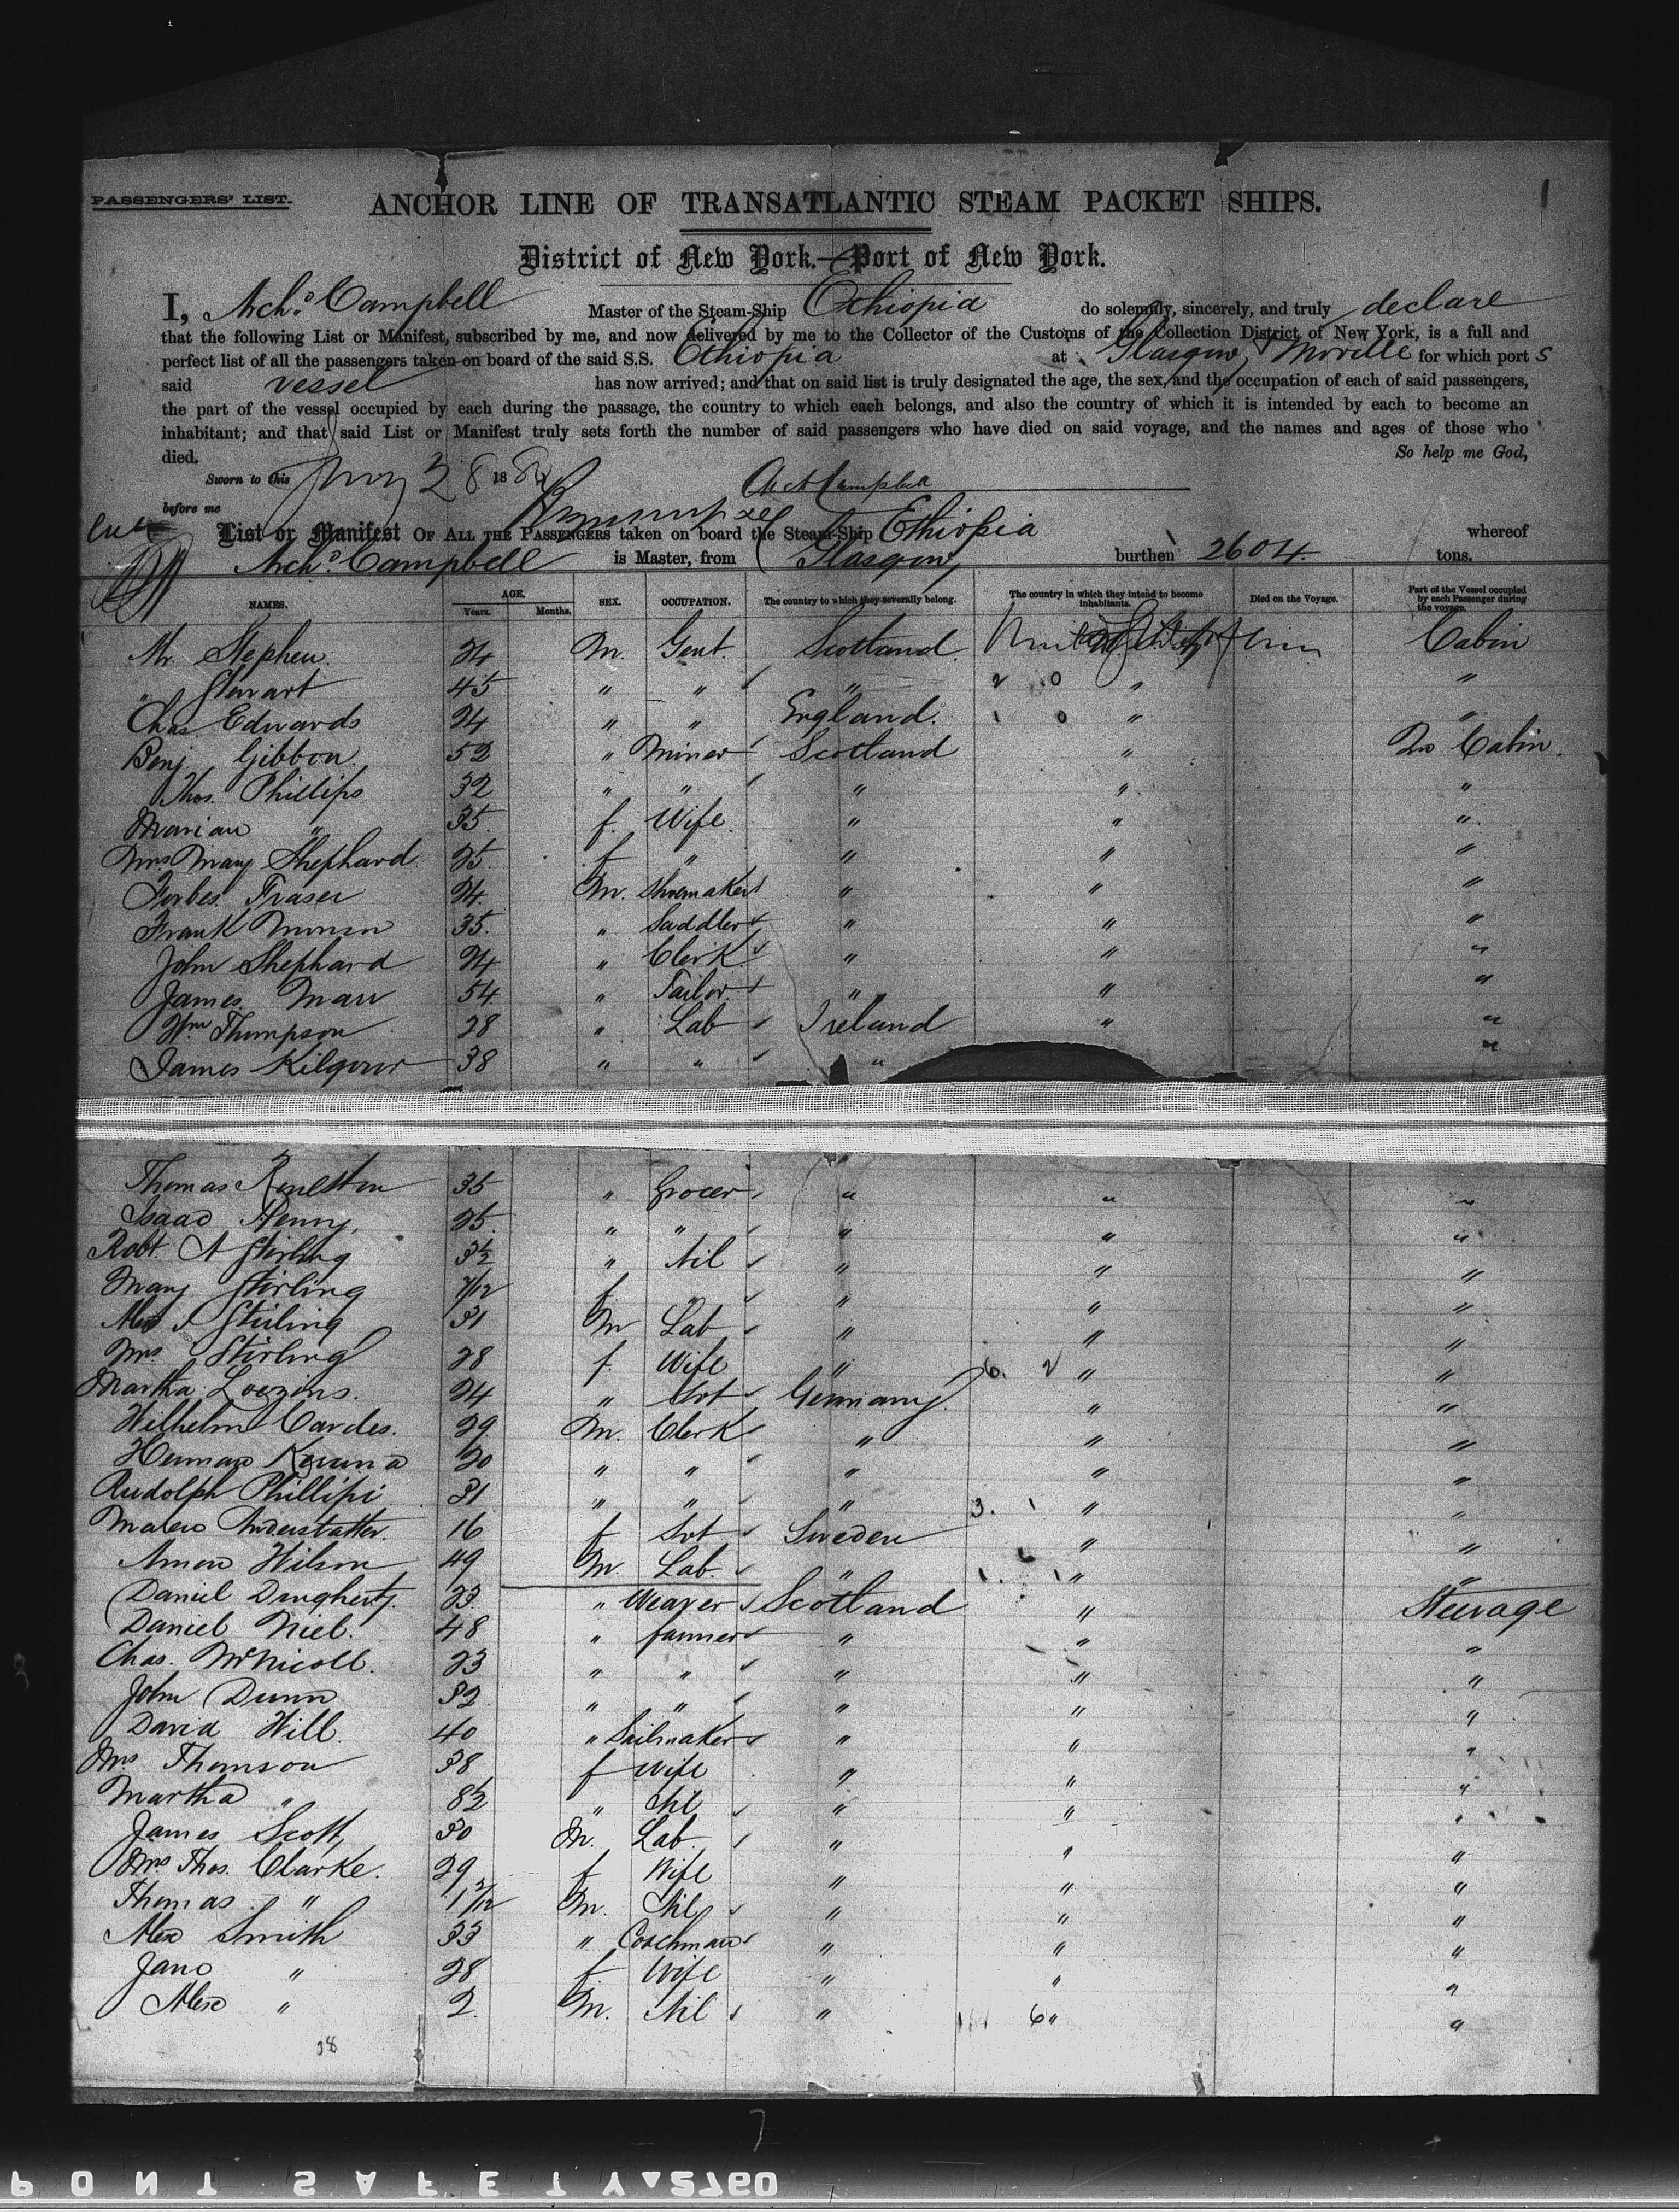 PASSENGERS' LIST.
1
ANCHOR LINE OF TRANSATLANTIC STEAM PACKET SHIPS.
District of New York.—Port of New York.
I, Archd. Campbell Master of the Steam-Ship Ethiopia do solemnly, sincerely, and truly declare
that the following List or Manifest, subscribed by me, and now delivered by me to the Collector of the Customs of the Collection District of New York, is a full and
perfect list of all the passengers taken on board of the said S.S. Ethiopia at Glasgow & Moville for which port s
said vessel has now arrived; and that on said list is truly designated the age, the sex, and the occupation of each of said passengers,
the part of the vessel occupied by each during the passage, the country to which each belongs, and also the country of which it is intended by each to become an
inhabitant; and that said List or Manifest truly sets forth the number of said passengers who have died on said voyage, and the names and ages of those who
died. So help me God,
Sworn to this 28 18 Archd Campbell
before me
List or Manifest OF ALL THE PASSENGERS taken on board the Steam-Ship Ethiopia whereof
Archd. Campbell is Master, from Glasgow, burthen 2604 tons.
NAMES. AGE. Years. Months. SEX. OCCUPATION. The country to which they severally belong. The country in which they intend to become inhabitants. Died on the Voyage. Part of the Vessel occupied by each Passenger during the voyage.
Mr Stephen. 24 M. Gent. Scotland. Cabin
" Stewart 45 " " " 2 0 " "
Chas Edwards 24 " " England. 1 0 " "
Benj. Gibbon. 52 " Miner Scotland " 2nd Cabin.
Thos. Phillips 32 " " " " "
Marian " 35. f. Wife. " " "
Mrs Mary Shephard 25. f " " " "
Forbes Fraser 24. M. Shoemaker " " "
Frank 35. " Saddler " " "
John Shephard 24 " Clerk " " "
James Marr 54 " Tailor. " " "
Wm Thompson 28 " Lab Ireland " "
James Kilgour 38 " " " "
Thomas 35 " Grocer " " "
Isaac Henry, 25. " " " " "
Robt. A Stirling 3½ " Nil " " "
Mary Stirling 7/12 f. " " " "
Alex J Stirling 31 M Lab " " "
Mrs Stirling 28 f. Wife " 6. 2 " "
Martha 24 " Svt Germany. " "
Wilhelm Cardes. 29 M. Clerk " " "
Herman 20 " " " " "
Rudolph Phillipi 31 " " " 3. 1 " "
16 f Svt Sweden " "
Wilson 49 M. Lab. " 1. 1 " "
Daniel Dougherty. 23. " Weaver Scotland " Steerage
Daniel Niel. 48 " farmer " " "
Chas. McNicoll. 23 " " " " "
John Dunn 32 " " " " "
David Will. 40 " Sailmaker " " "
Mrs Thomson 38 f Wife " " "
Martha " 8½ " Nil " " "
James Scott, 30 M. Lab. " " "
Mrs Thos. Clarke. 29 f Wife " " "
Thomas " M. Nil " " "
Alex Smith 33 " Coachman " " "
Jane " 28 f Wife " " "
Alex " 2. M. Nil " 6 " "
38
PONT SAFETY▲2760